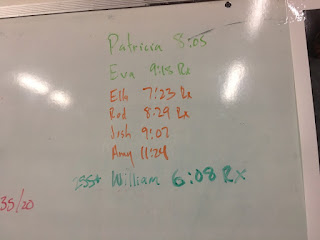 Patricia 8:05
Eva 9:18 Rx
Elh 7:23 Rx
Rod 8:29 Rx
Josh 9:07
Amy 11:24
William 6:08 Rx
35/20